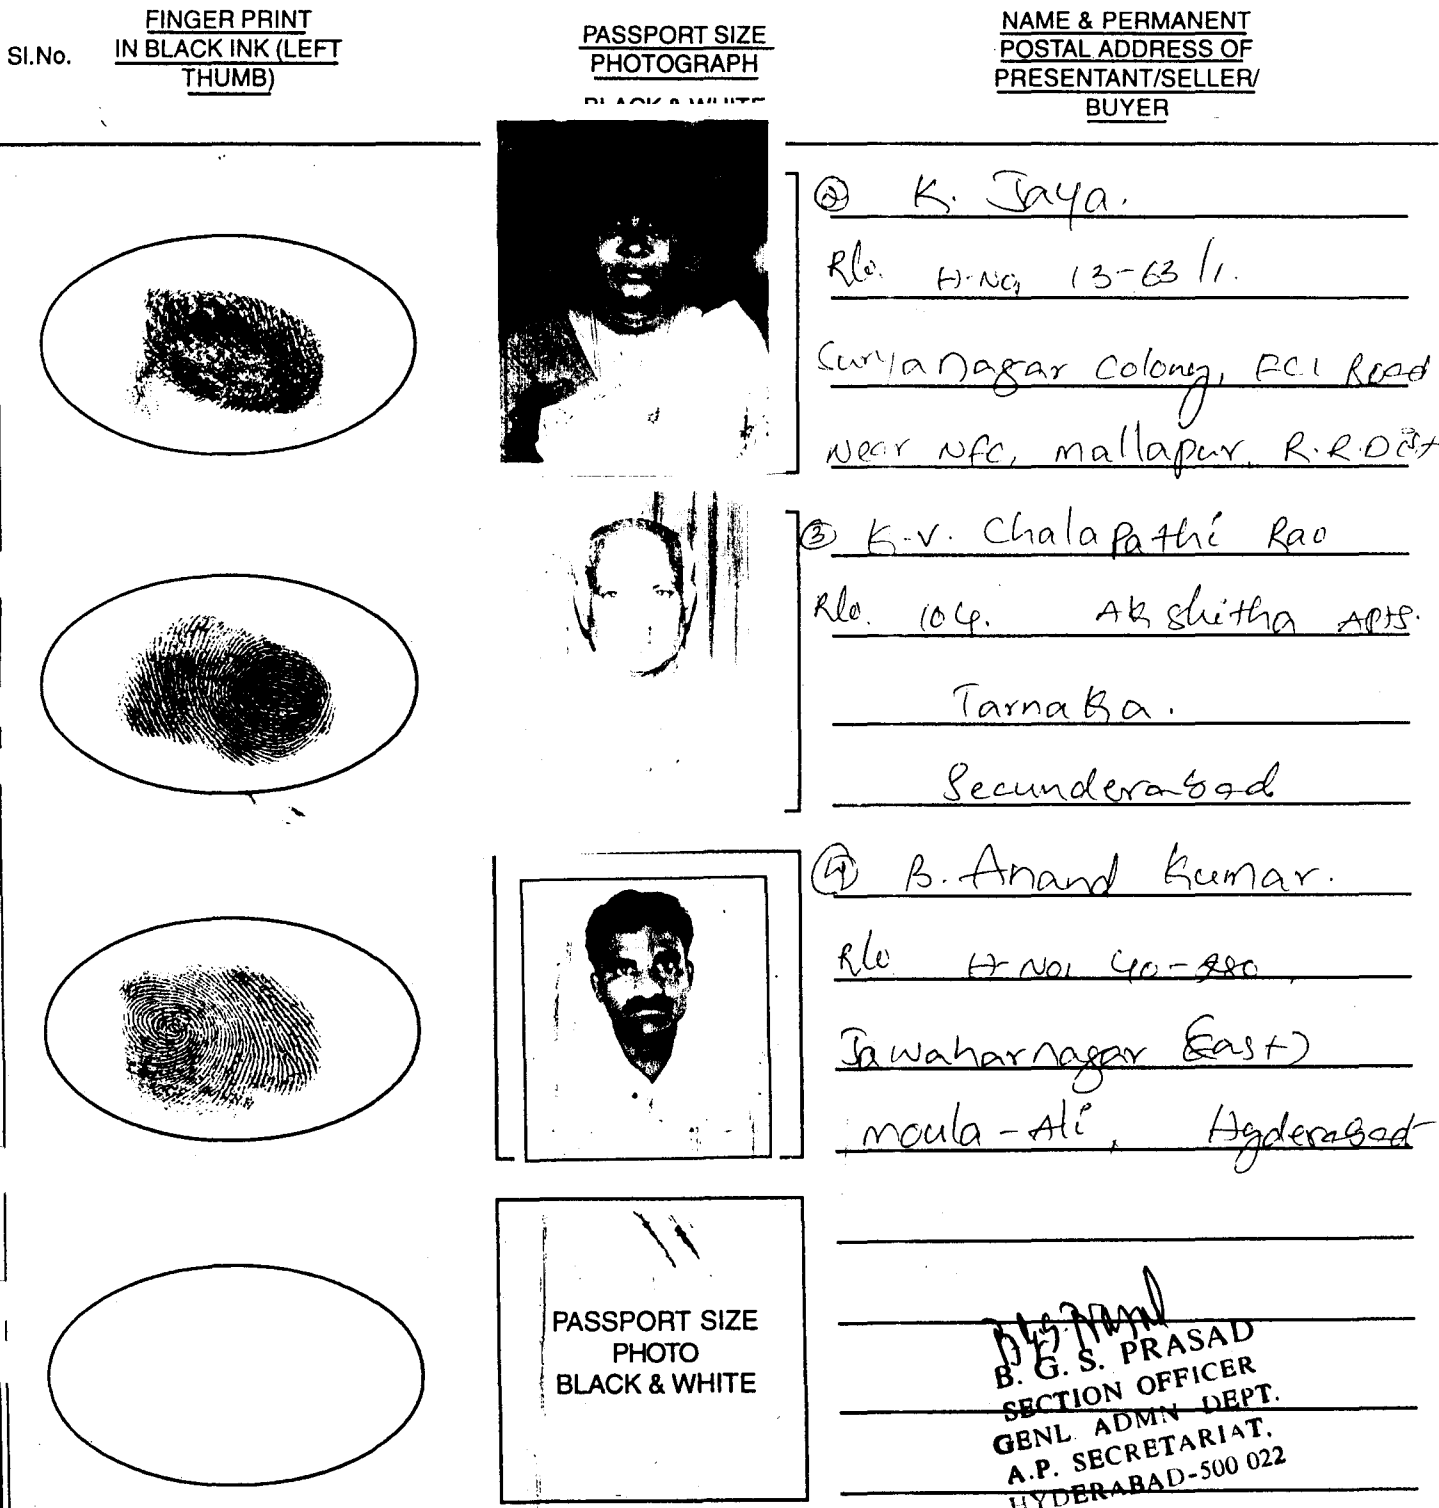 Sl.No.
FINGER PRINT
IN BLACK INK (LEFT
THUMB)
PASSPORT SIZE
PHOTOGRAPH
BLACK & WHITE
NAME & PERMANENT
POSTAL ADDRESS OF
PRESENTANT/SELLER/
BUYER
② K. Jaya.
R/o. H-No, 13-63/1.
Suryanagar Colony, FCI Road
Near NFC, mallapur, R.R.Dist
③ K.V. Chalapathi Rao
R/o. 104. Akshitha Apts.
Tarnaka.
Secunderabad
④ B. Anand Kumar.
R/o H-No, 40-280,
Jawaharnagar (East)
moula-Ali, Hyderabad
PASSPORT SIZE
PHOTO
BLACK & WHITE
B.G.S. Prasad
B. G. S. PRASAD
SECTION OFFICER
GENL. ADMN DEPT.
A.P. SECRETARIAT,
HYDERABAD-500 022